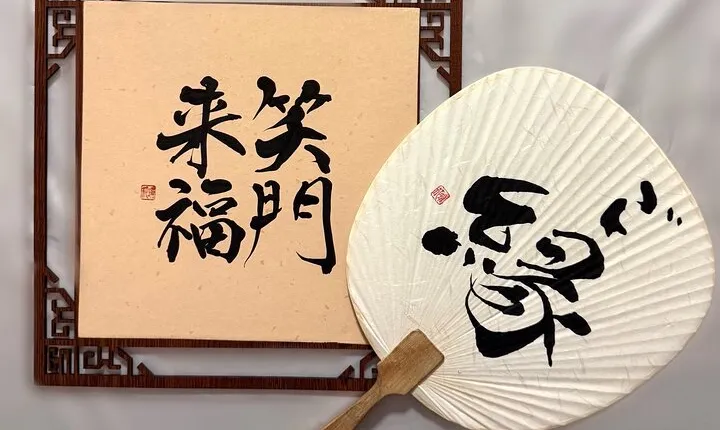 笑門
来福
ご縁